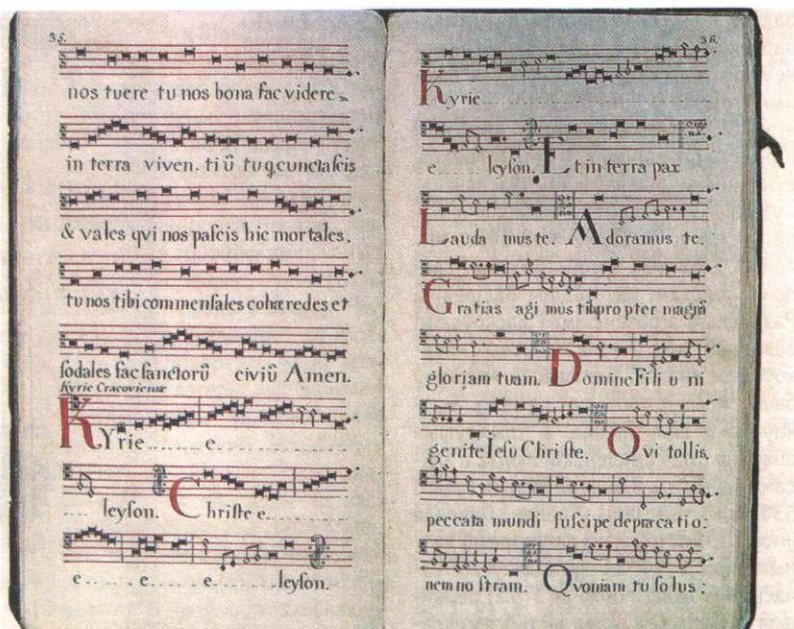 35.
nos tuere tu nos bona fac videre
in terra viven. tiū tu q; cuncta ſcis
& vales qvi nos paſcis hic mortales.
tu nos tibi commenſales cohæredes et
ſodales fac ſanctorū civiū Amen.
Kyrie Cracoviense
KYrie e
leyſon. Chriſte e.
e e e leyſon.
36.
Kyrie
e. leyſon. Et in terra pax
Lauda mus te. Adoramus te.
Gratias agi mus tibi pro pter magnā
gloriam tuam. Domine Fili u ni
genite Ieſu Chri ſte. Qvi tollis.
peccata mundi ſuſcipe depræca tio:
nem no ſtram. Qvoniam tu ſo lus: